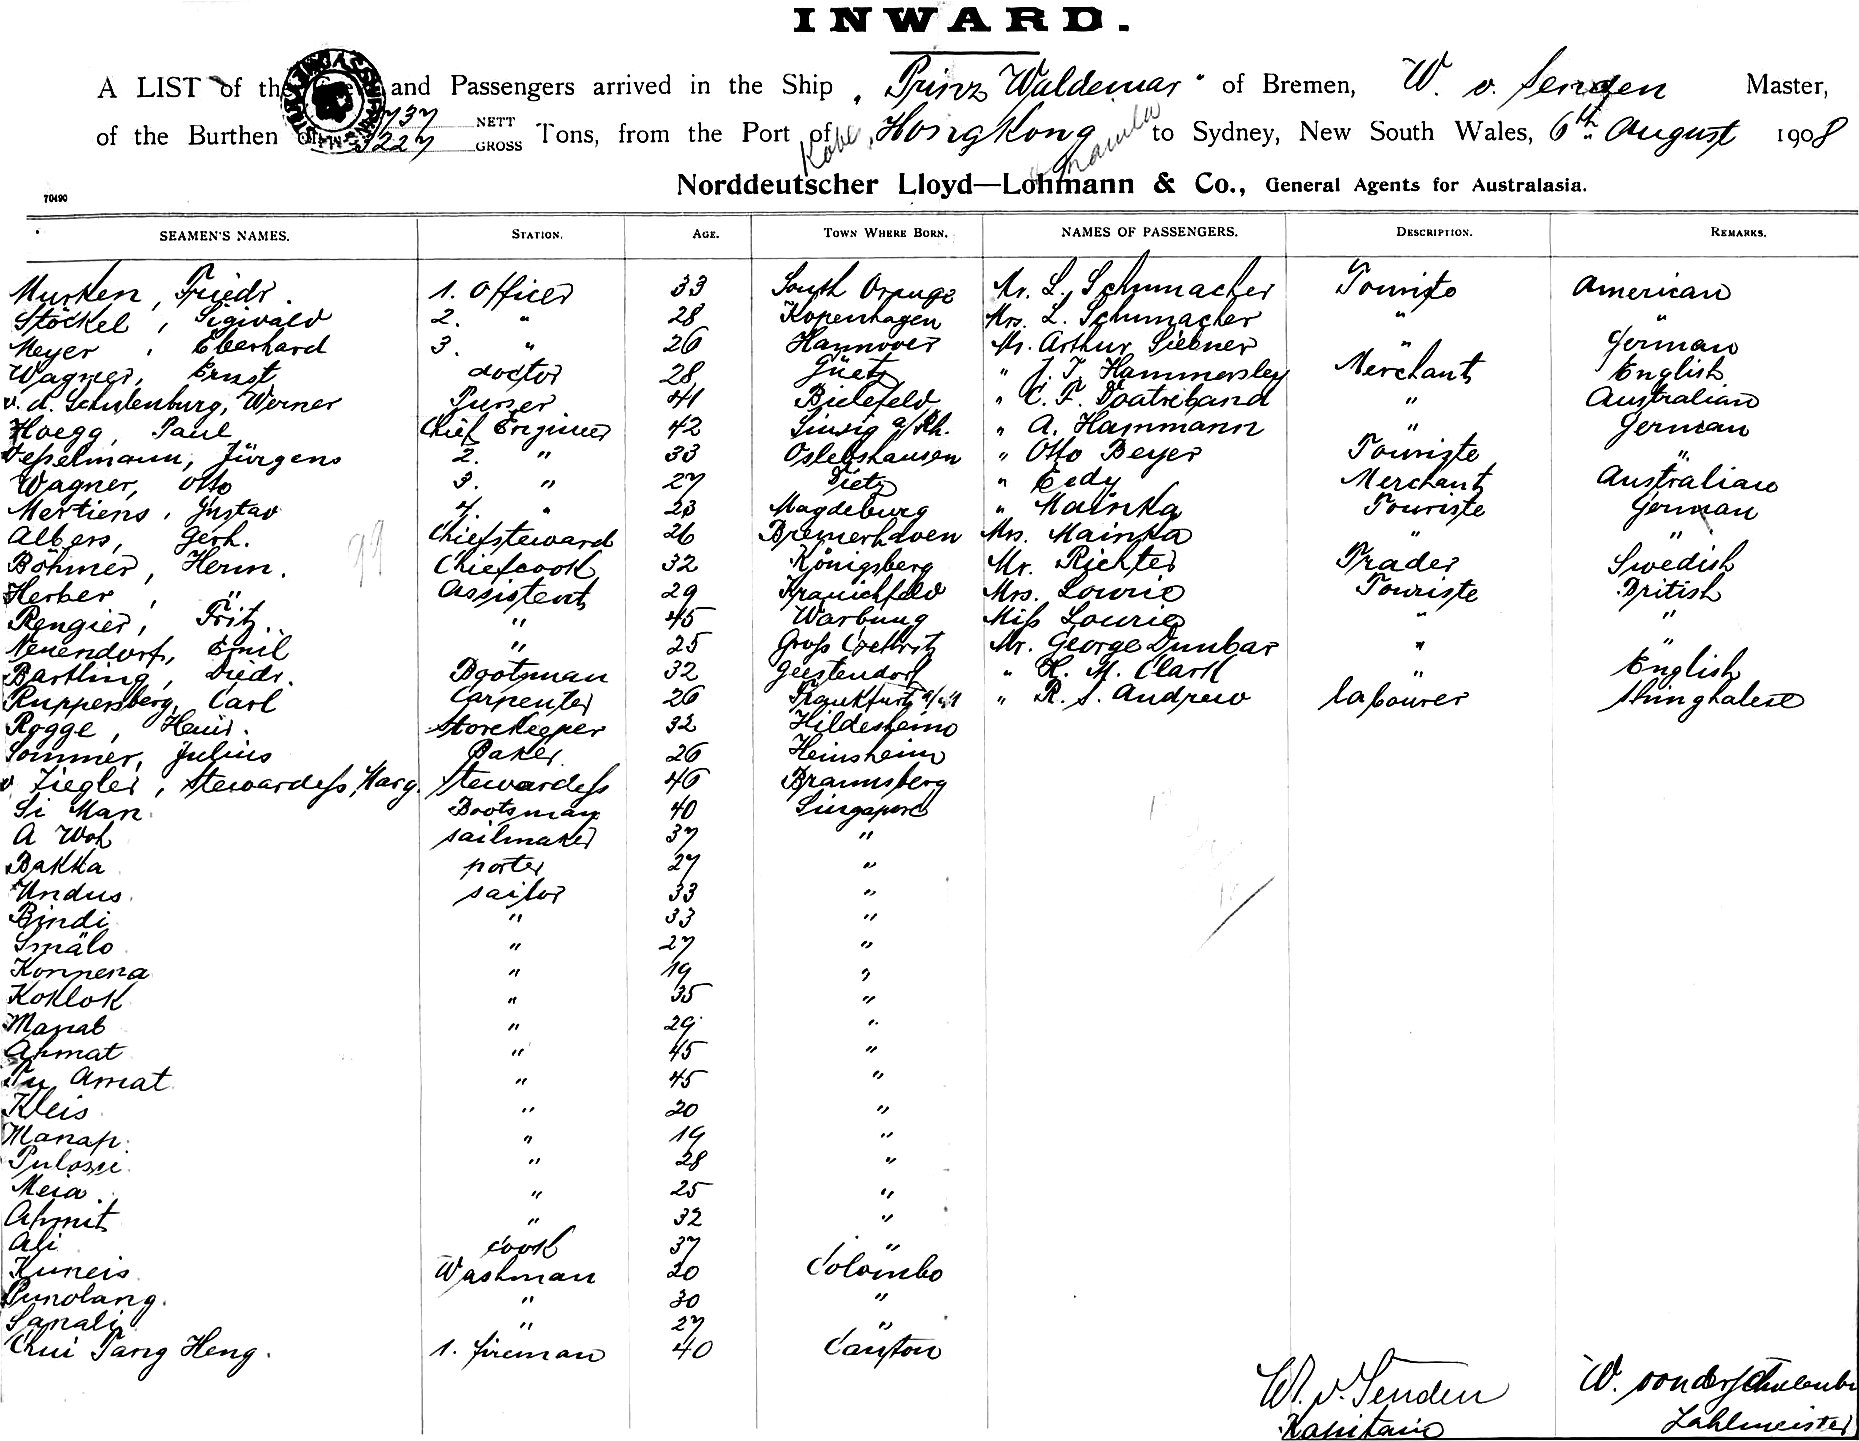 INWARD.
A LIST of the and Passengers arrived in the Ship „Prinz Waldemar" of Bremen, W. v. Senden Master,
of the Burthen of 1737 NETT 3227 GROSS Tons, from the Port of Kobe, Hongkong & Manila to Sydney, New South Wales, 6th August 1908
Norddeutscher Lloyd—Lohmann & Co., General Agents for Australasia.
70490
SEAMEN'S NAMES. STATION. AGE. TOWN WHERE BORN. NAMES OF PASSENGERS. DESCRIPTION. REMARKS.
Murken, Friedr. 1. Officer 33 South Orange Mr. L. Schumacher Touriste American
Stöckel, Sigivald 2. " 28 Kopenhagen Mrs. L. Schumacher " "
Meyer, Eberhard 3. " 26 Hannover Mr. Arthur Siebner " German
Wagner, Ernst doctor 28 " J. T. Hammersley Merchant English
v. d. Schulenburg, Werner Purser 41 Bielefeld " C. F. " Australian
Hoegg, Paul Chief Engineer 42 Sinzig a/Rh. " A. Hammann " German
Tesselmann, Jürgens 2. " 33 Oslebshausen " Otto Beyer Touriste "
Wagner, Otto 3. " 27 Dietz " Eedy Merchant Australian
Mertiens, Gustav 4. " 23 Magdeburg " Mainka Touriste German
Albers, Gerh. Chiefsteward 26 Bremerhaven Mrs. Mainka " "
Böhmer, Herm. Chiefcook 32 Königsberg Mr. Richter Trader Swedish
Herber, " Assistent 29 Kranichfeld Mrs. Lourie Touriste British
Rengier, Fritz. " 45 Warburg Miss Lourie " "
Neuendorf, Emil " 25 Gross Mr. George Dunbar " "
Bartling, Diedr. Bootsman 32 Geestendorf " H. M. Clark " English
Ruppersberg, Carl Carpenter 26 Frankfurt a/M " R. S. Andrew labourer Shinghalese
Rogge, Heinr. Storekeeper 32 Hildesheim
Sommer, Julius Baker. 26 Heinsheim
v. Ziegler, Stewardess Marg. Stewardess 46 Braunsberg
Si Man. Bootsman 40 Singapore
A Woh sailmaker 37 "
Bakka porter 27 "
Undus. sailor 33 "
Bindi " 33 "
Smälo " 27 "
Konnena " 19 "
Koklok " 35 "
Manat " 29 "
Ahmat " 45 "
Tu Amat. " 45 "
Kleis " 20 "
Manap. " 19 "
Pulosu. " 28 "
Meia. " 25 "
Ahmit " 32 "
Ali cook 37 "
Kuneis Washman 20 Colombo
Punolang. " 30 "
Sanali " 27 "
Chui Tang Heng. 1. fireman 40 Canton
W. v. Senden W. von der Schulenbu
Kapitain Zahlmeister